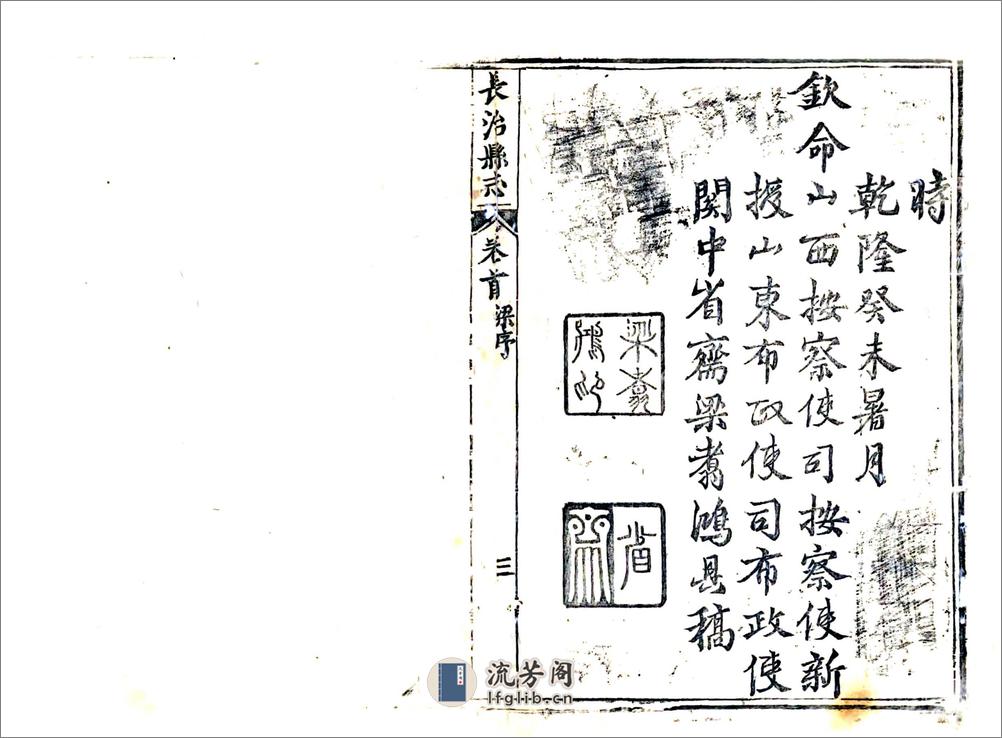 時
乾隆癸未暑月
欽命山西按察使司按察使新
授山東布政使司布政使
関中省齋梁翥鴻具稿
梁翥
鴻印
省
齋
長治縣志
卷首
梁序
三
流芳阁
lfglib.cn